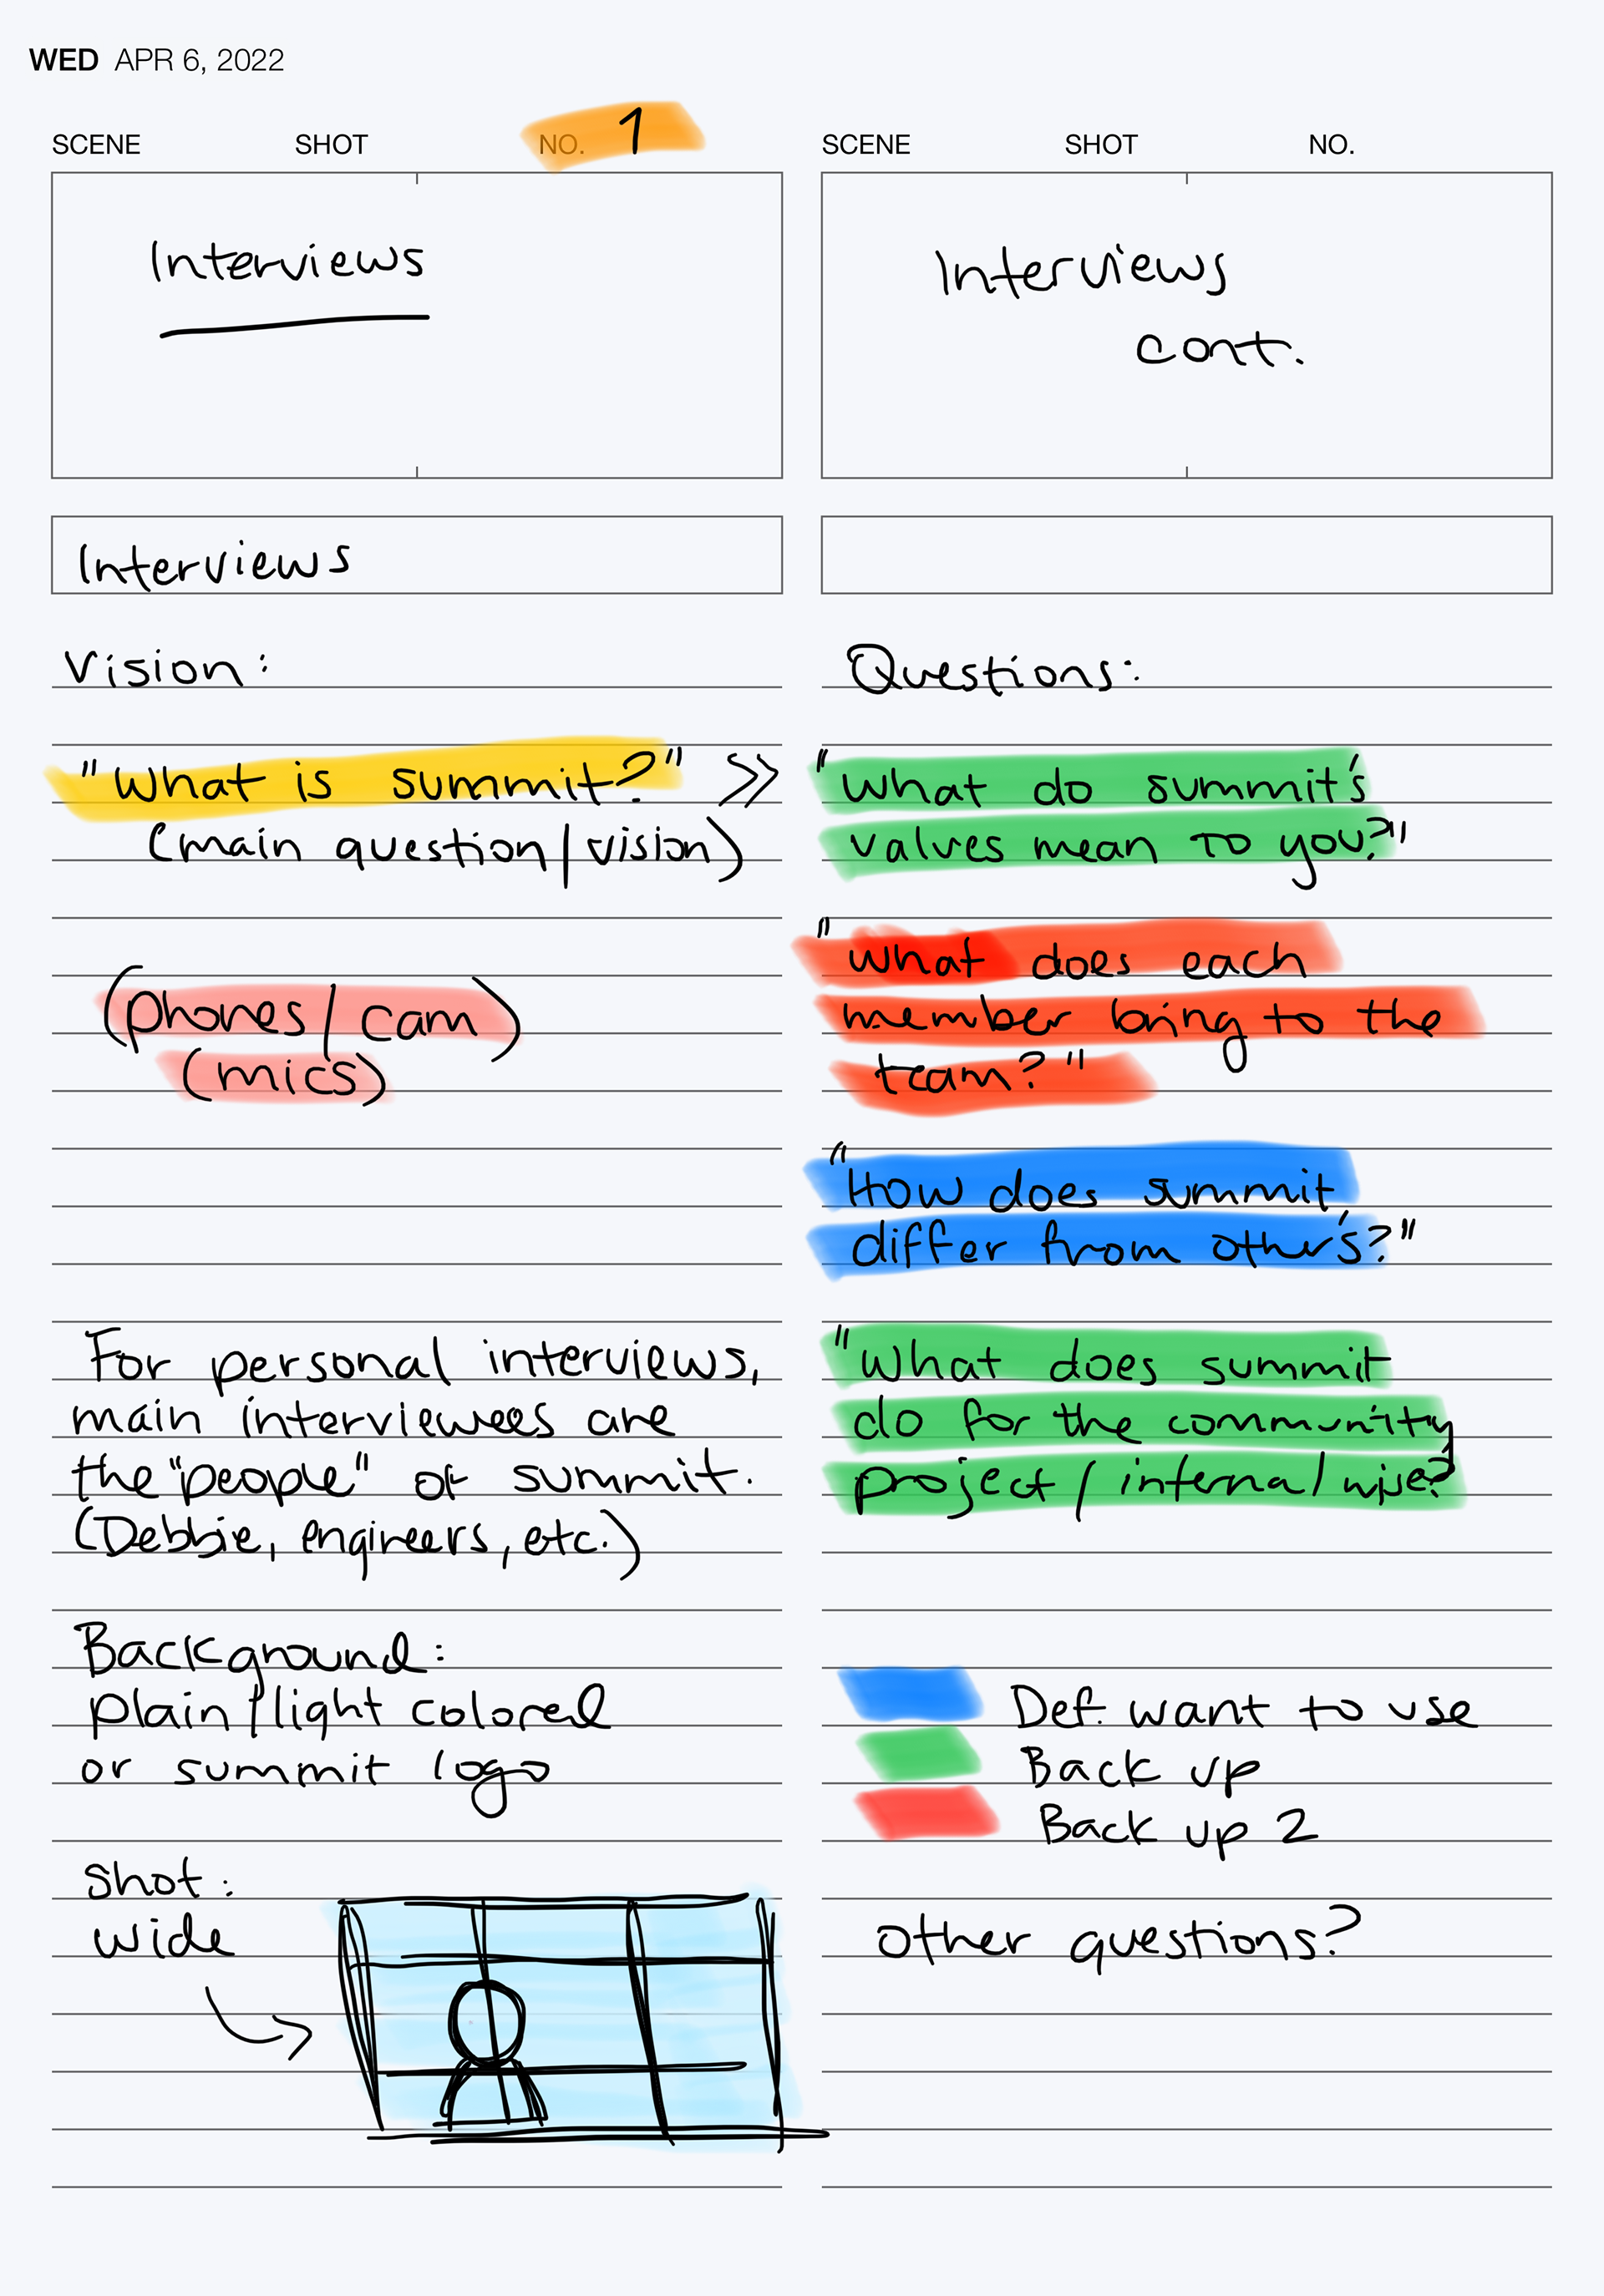 WED APR 6, 2022
SCENE SHOT NO. 1
Interviews
Interviews
Vision:
"What is summit?" >>
(main question/vision)
(phones/cam)
(mics)
For personal interviews,
main interviewees are
the "people" of summit.
(Debbie, engineers, etc.)
Background:
plain/light colored
or summit logo
Shot:
wide
SCENE SHOT NO.
Interviews
cont.
Questions:
"What do summit's
values mean to you?"
"What does each
member bring to the
team?"
"How does summit
differ from other's?"
"What does summit
do for the community
project/internal wise?
Def. want to use
Back up
Back up 2
other questions?